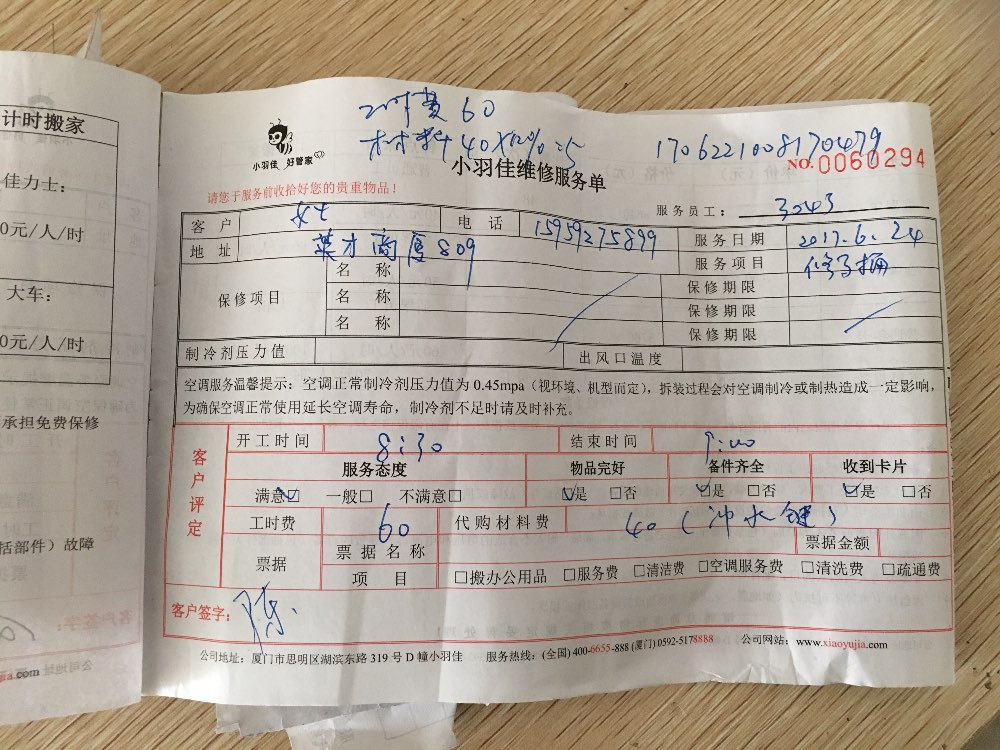 计时搬家
佳力士：
0元/人/时
大车：
0元/人/时
承担免费保修
括部件）故障
客户签字：
工时费60
材料40×12%=5
小羽佳 好管家
小羽佳维修服务单
1706221008170479
NO.0060294
请您于服务前收拾好您的贵重物品！
服务员工： 3043
客户 女士 电话 15959275899 服务日期 2017.6.24
地址 英才商厦809 服务项目 修马桶
保修项目 名称 保修期限
名称 保修期限
名称 保修期限
制冷剂压力值 出风口温度
空调服务温馨提示：空调正常制冷剂压力值为0.45mpa（视环境、机型而定），拆装过程会对空调制冷或制热造成一定影响，
为确保空调正常使用延长空调寿命，制冷剂不足时请及时补充。
客户评定
开工时间 8:30 结束时间 9:00
服务态度 物品完好 备件齐全 收到卡片
满意☑ 一般□ 不满意□ ☑是 □否 ☑是 □否 ☑是 □否
工时费 60 代购材料费 40（冲水键）
票据 票据名称 票据金额
项目 □搬办公用品 □服务费 □清洁费 □空调服务费 □清洗费 □疏通费
客户签字： 陈
公司地址：厦门市思明区湖滨东路319号D幢小羽佳 服务热线：(全国) 400-6655-888 (厦门) 0592-5178888 公司网站：www.xiaoyujia.com